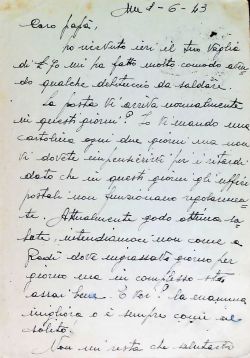 1-6-43
Caro papà,
ho ricevuto ieri il tuo vaglia
di £ 70 mi ha fatto molto comodo aven
do qualche debituccio da saldare.
La posta ti arriva normalmente
in questi giorni? Io ti mando una
cartolina ogni due giorni ma non
ti dovete impensierire per i ritardi
dato che in questi giorni gli uffici
postali non funzionano regolarmen
te. Attualmente godo ottima sa
lute, intendiamoci non come a
Rodi dove ingrassavo giorno per
giorno ma in complesso sto
assai bene. E Voi? La mamma
migliora o è sempre come al
solito.
Non mi resta che salutarti